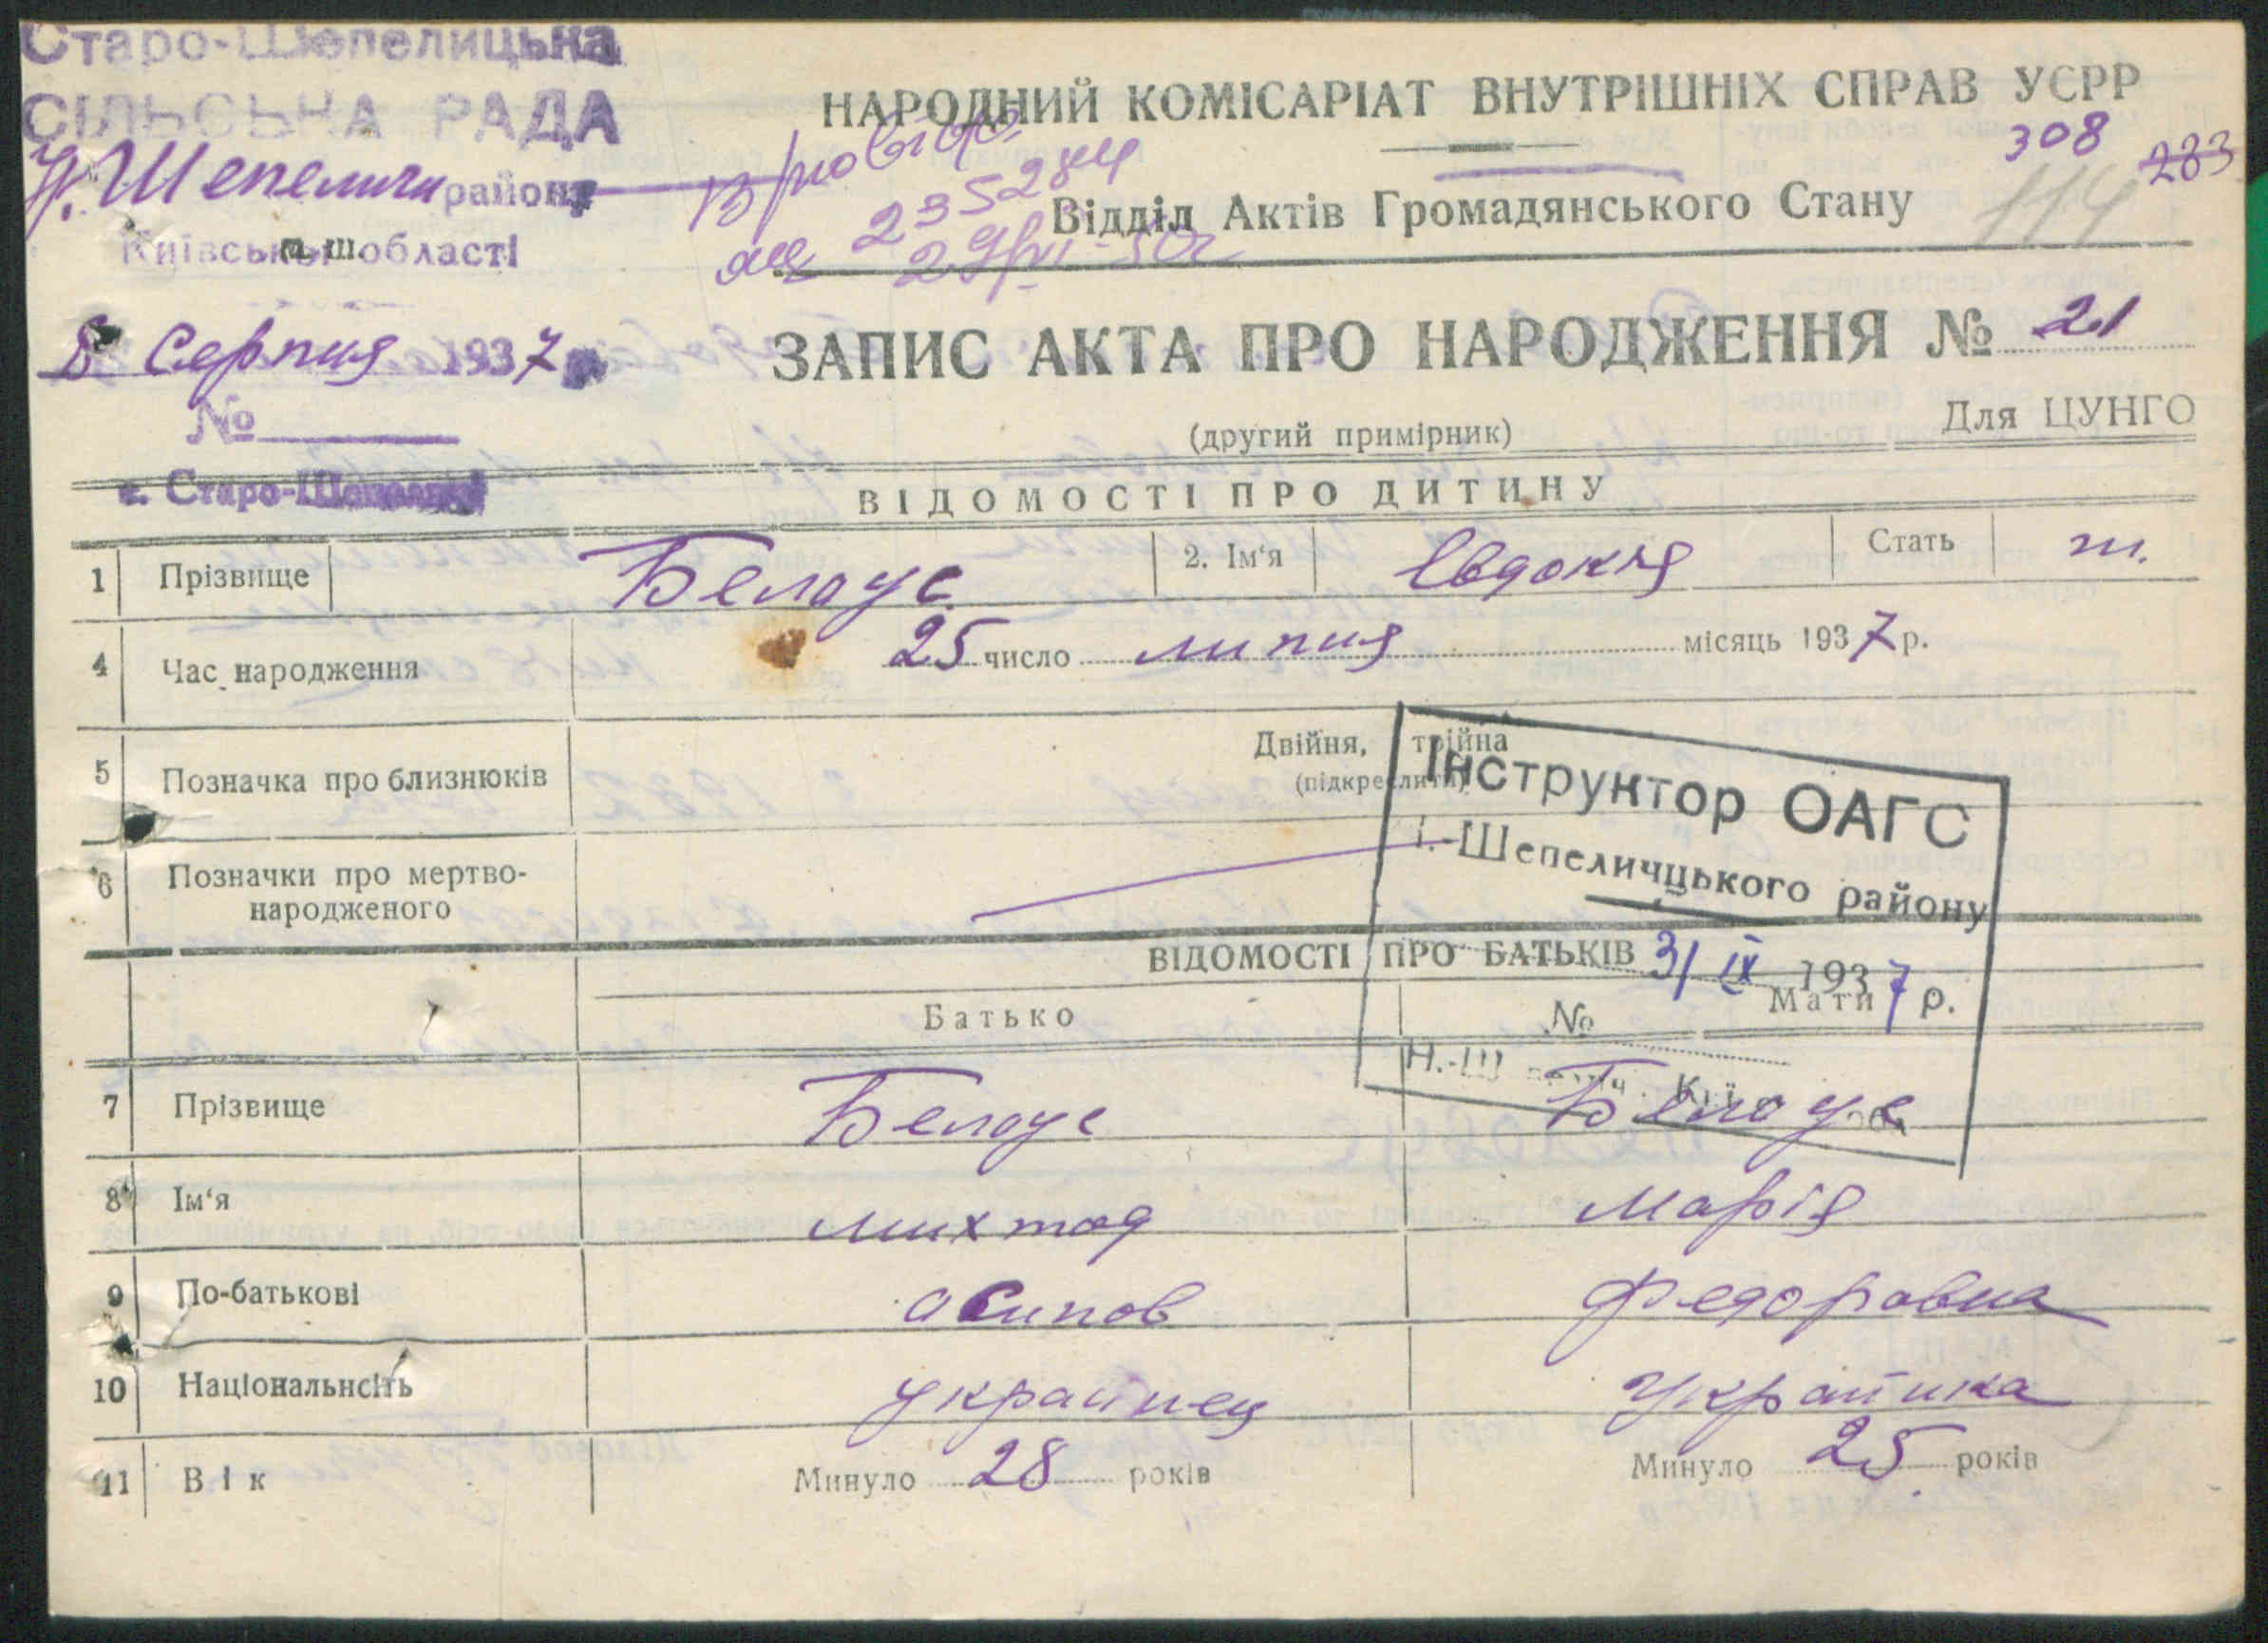 Старо-Шепелицька
СІЛЬСЬКА РАДА
Н. Шепеличи район
Київської області
п. ш.
8 Серпня 1937 р
№
с. Старо-Шепеличі
НАРОДНИЙ КОМІСАРІАТ ВНУТРІШНІХ СПРАВ УСРР
308 283
235284
Відділ Актів Громадянського Стану
114
ЗАПИС АКТА ПРО НАРОДЖЕННЯ № 21
(другий примірник)
Для ЦУНГО
ВІДОМОСТІ ПРО ДИТИНУ
1 Прізвище Белоус 2. Ім'я Євдокія Стать ж.
4 Час народження 25 число липня місяць 1937 р.
5 Позначка про близнюків Двійня, трійна
(підкреслити)
6 Позначки про мертво-
народженого
Інструктор ОАГС
Н.-Шепеличцького району
3/IX 1937 р.
№
ВІДОМОСТІ ПРО БАТЬКІВ
Батько Мати
7 Прізвище Белоус Белоус
8 Ім'я михтод Марія
9 По-батькові асипов Федоровна
10 Національнсіть украинец Украинка
11 Вік Минуло 28 років Минуло 25 років